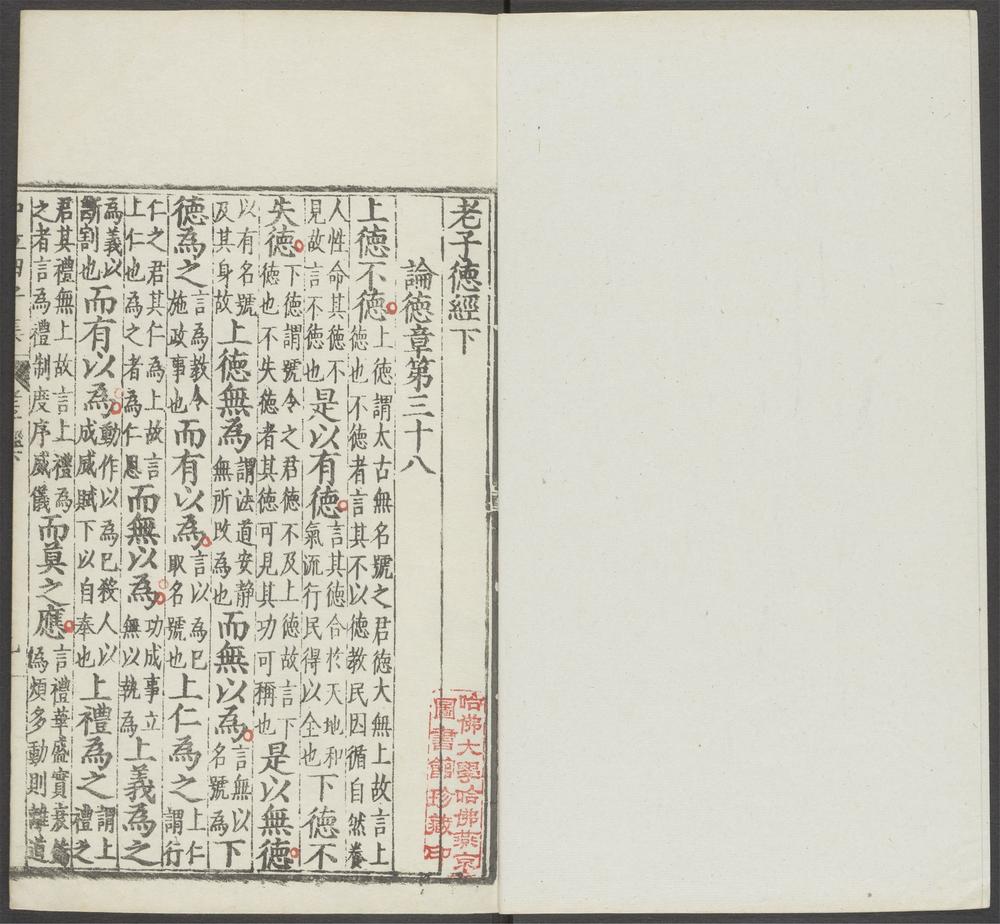 老子德經下
論德章第三十八
上德不德上德謂太古無名號之君德大無上故言上德也不德者言其不以德教民因循自然養
人性命其德不見故言不德也是以有德言其德合於天地和氣流行民得以全也下德不
失德下德謂號令之君德不及上德故言下德也不失德者其德可見其功可稱也是以無德
以有名號及其身故上德無為謂法道安靜無所改為也而無以為言無以名號為下
德為之言為教令施政事也而有以為言以為己取名號也上仁為之上仁謂行
仁之君其仁為上故言上仁也為之者為仁恩而無以為功成事立無以執為上義為之
為義以斷割也而有以為動作以為己殺人以成威賦下以自奉也上禮為之謂上禮之
君其禮無上故言上禮為之者言為禮制度序威儀而莫之應言禮華盛實衰飾偽煩多動則離道
哈佛大學哈佛燕京
圖書館珍藏印